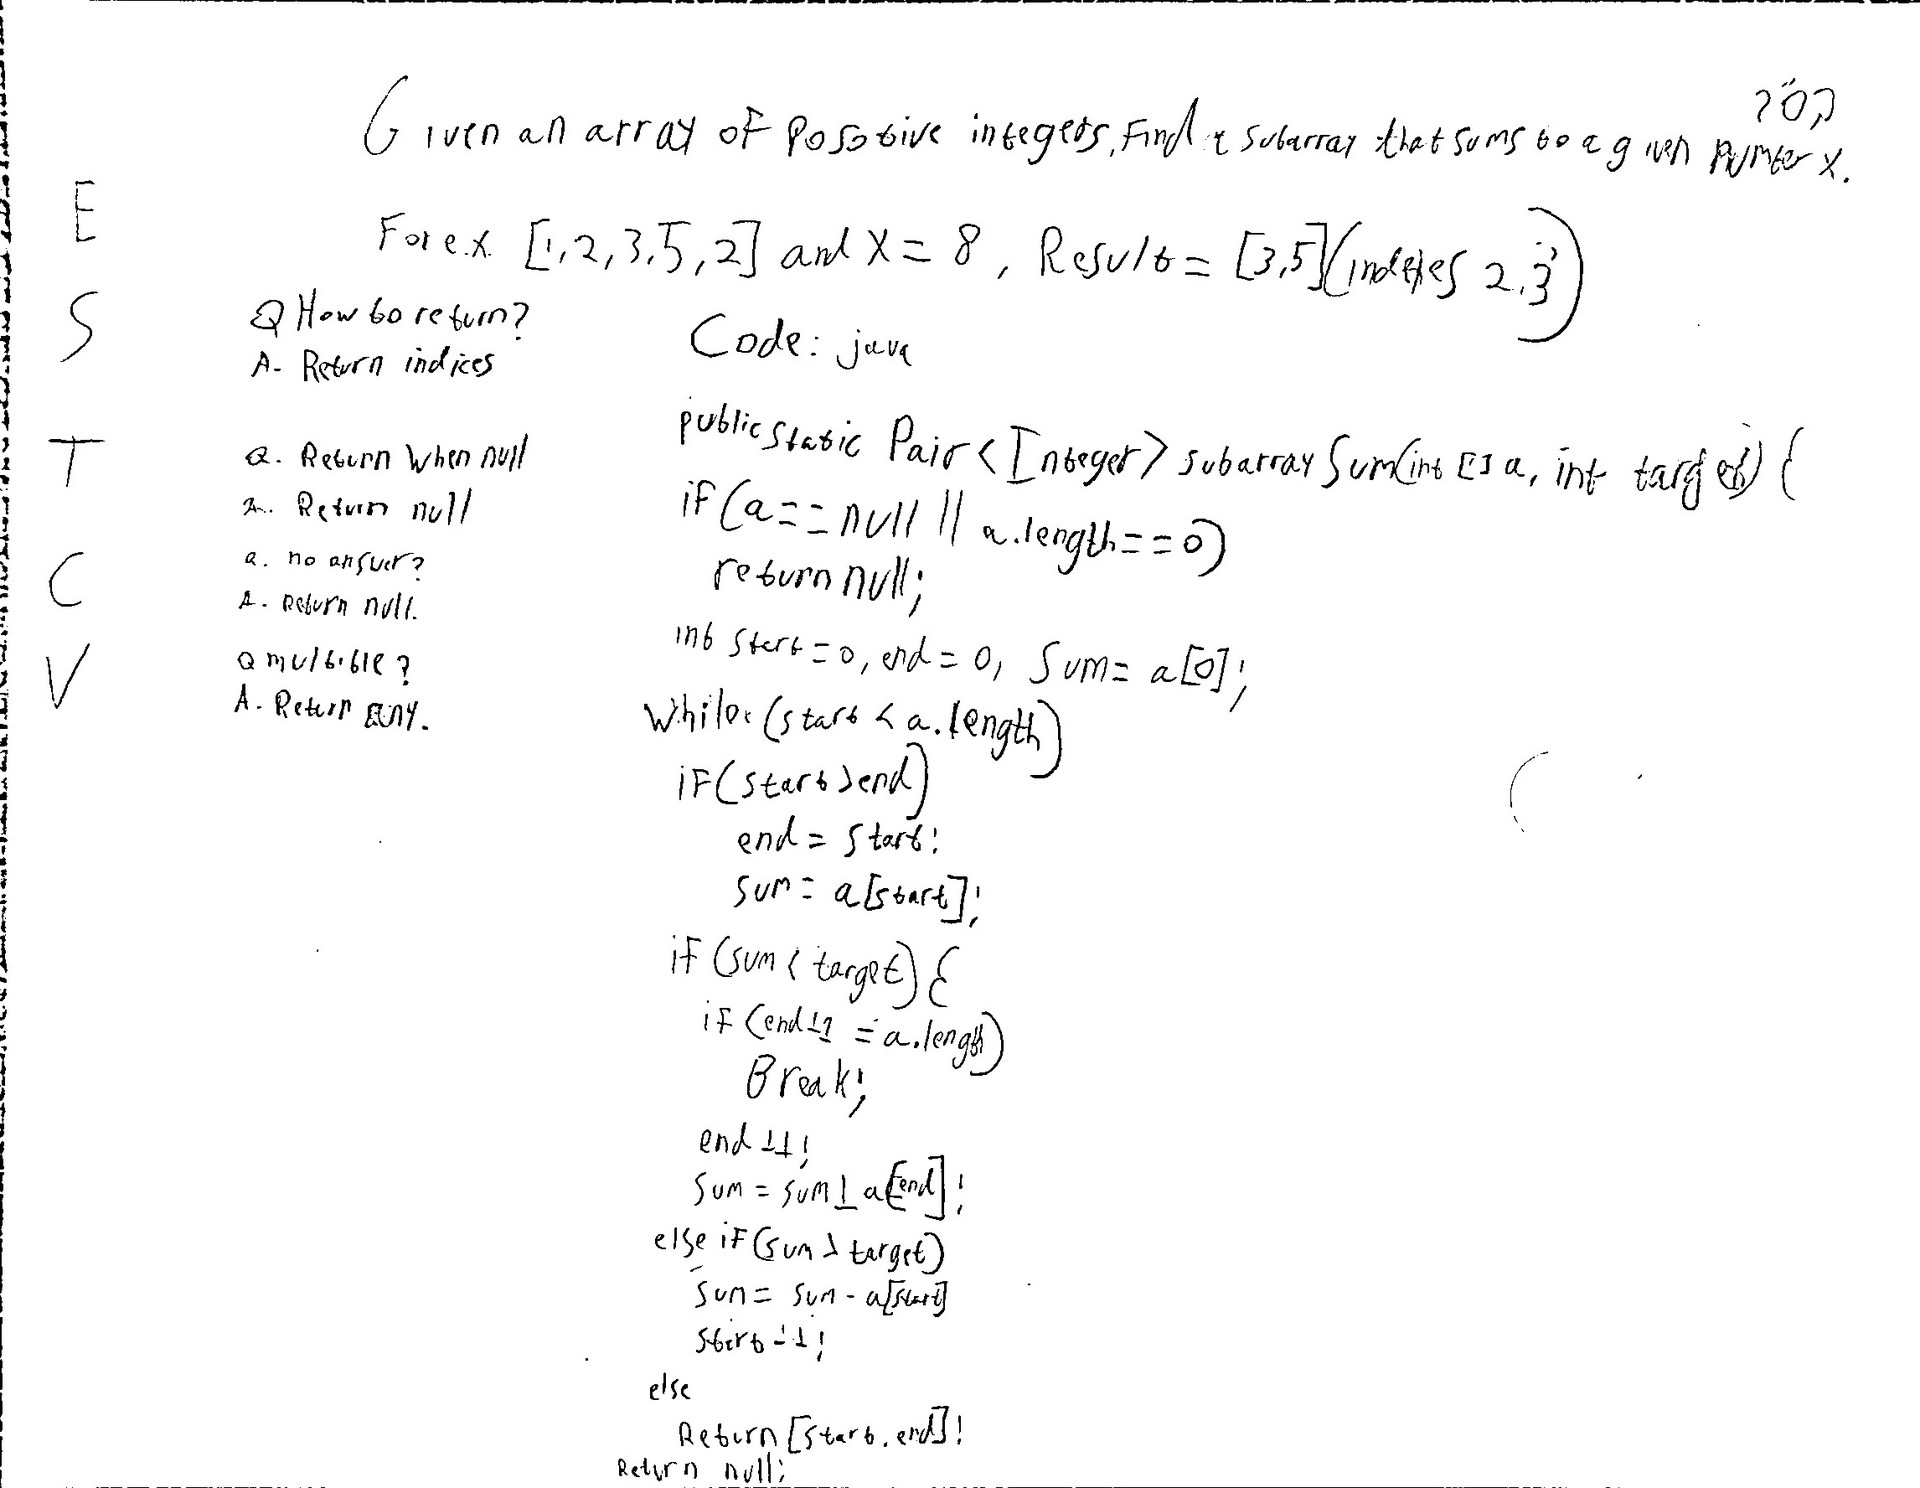 ?0?
Given an array of Posotive integers, Find a subarray that sums to a given number x.
For ex. [1,2,3,5,2] and X = 8, Result = [3,5] (indexes 2,3)
E
S
T
C
V
Q How to return?
A. Return indices
Q. Return when null
A. Return null
Q. no answer?
A. Return null.
Q multible?
A. Return any.
Code: java
public static Pair<Integer> subarray Sum(int [] a, int target) {
if (a == null || a.length == 0)
return null;
int start = 0, end = 0, Sum = a[0];
While (start < a.length)
if (start > end)
end = start;
sum = a[start];
if (sum < target) {
if (end+1 = a.length)
Break;
end ++;
Sum = sum + a[end];
else if (sum > target)
Sum = Sum - a[start]
start ++;
else
Return [start, end];
Return null;